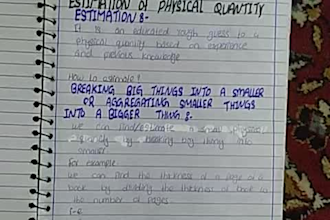 ESTIMATION OF PHYSICAL QUANTITY
ESTIMATION :-
It is an educated rough guess to a
physical quantity based on experience
and previous knowledge
How to estimate?
BREAKING BIG THINGS INTO A SMALLER
OR AGGREGATING SMALLER THINGS
INTO A BIGGER THING :-
we can find/estimate a small physical
quantity by breaking big thing into
smaller
For example
we can find the thickness of a page of a
book by dividing the thickness of book to
the number of pages